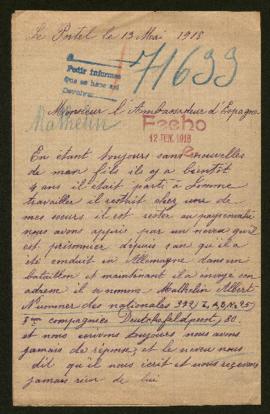 Le Portel le 13 Mai 1918
71633
Pedir informes
que se haga así
Devolver
Monsieur l'Ambassadeur d'Espagne
Mathelin
Fecho
1918
En étant toujours sans nouvelles
de mon fils il y a bientôt
4 ans il était parti à Somme
travailler il restait chez une de
mes sœurs il est rester au pays
nous avons appris par un neveu qu'il
est prisonnier depuis un an qu'il a
été enduit en Allemagne dans un
bataillon et maintenant il a envoyé son
adresse il se nomme Mathelin Albert
Nummer des nationales 992 Z.A.B. N° 25
3me compagnie Deutschefeldpost 80
et nous écrivons toujours nous avons
jamais de réponse, et le neveu nous
dit qu'il nous écrit et nous recevons
jamais rien de lui